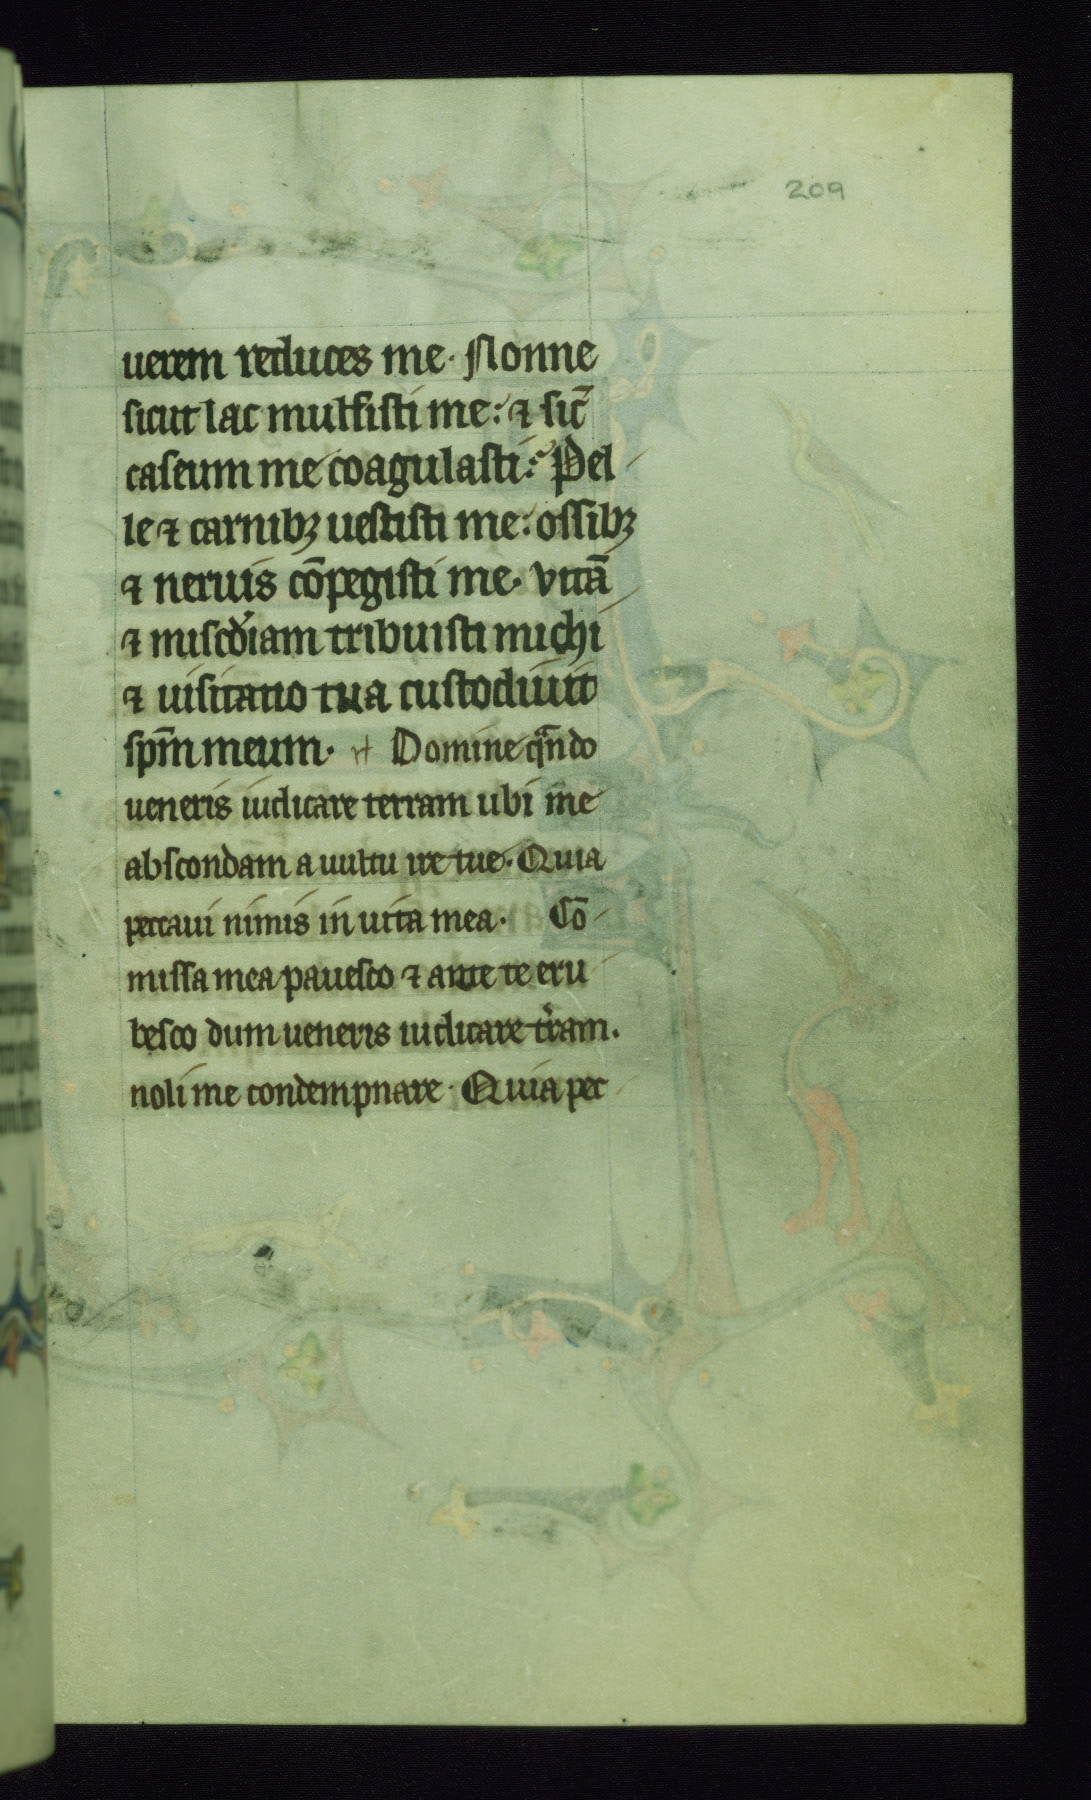 209
uerem reduces me. Nonne
sicut lac mulsisti me: ⁊ sic̃
caseum me coagulasti: Pel
le ⁊ carnibꝫ uestisti me: ossibꝫ
⁊ neruis cōpegisti me. vitā
⁊ misc̃diam tribuisti michi
⁊ uisitatio tua custodiuit
sp̄m meum. Domine qñdo
ueneris iudicare terram ubi me
abscondam a uultu ire tue. Quia
peccaui nimis in uita mea. Cō
missa mea pauesco ⁊ ante te eru
besco dum ueneris iudicare t̃ram.
noli me condempnare. Quia pec